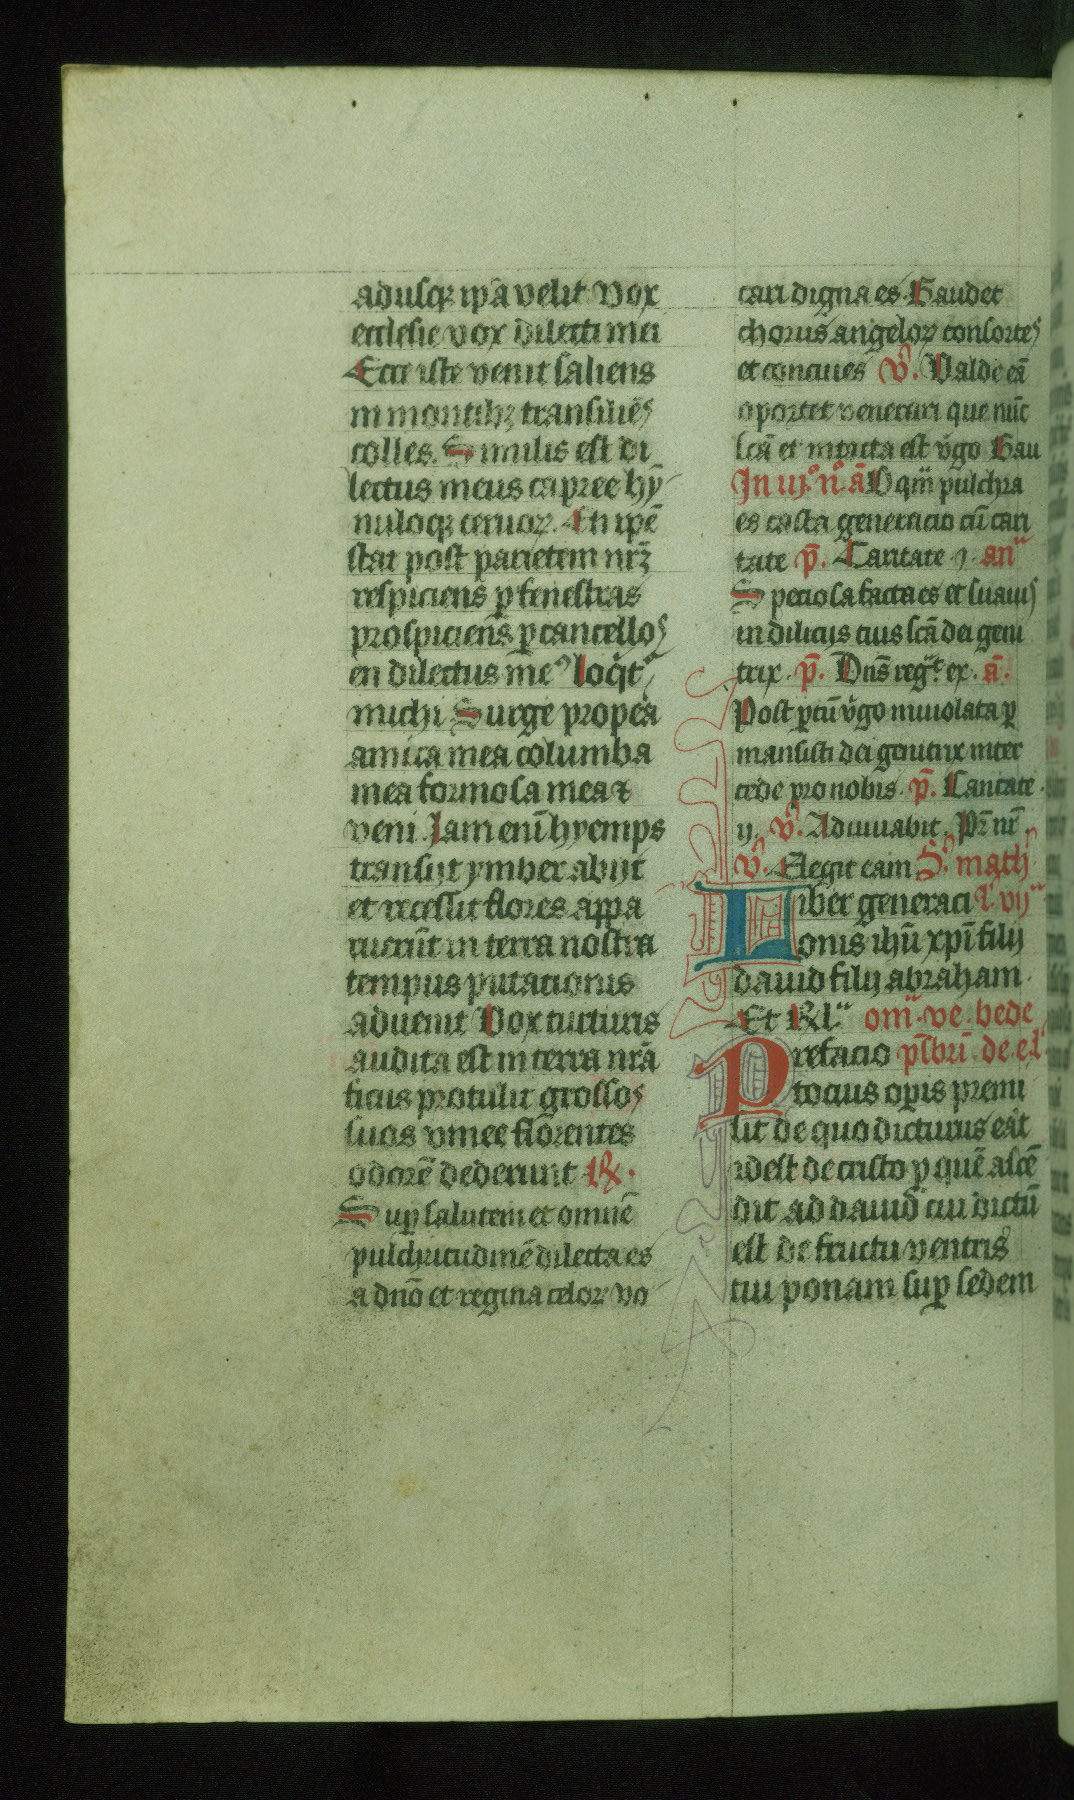 adusq; ip̄a velit Vox
ecclesie vox dilecti mei
Ecce iste venit saliens
in montib; transiliēs
colles. Similis est di
lectus meus capree hȳ
nuloq; ceruoꝝ. En ip̄e
stat post parietem nr̄ꝫ
respiciens ꝑ fenestras
prospiciens ꝑ cancellos
en dilectus meꝰ loq̄t᷑
michi Surge propera
amica mea columba
mea formosa mea ⁊
veni Iam enī hyemps
transijt ymber abijt
et recessit flores appa
ruerūt in terra nostra
tempus putationis
aduenit Vox turturis
audita est in terra nr̄a
ficus protulit grossos
suos vinee florentes
odorē dederunt ℟.
Suꝑ salutem et omnē
pulchritudinē dilecta es
a dn̄o et regina celoꝝ vo
cari digna es. Gaudet
chorus angeloꝝ consortes
et conciues v̊. Valde eā
oportet venerari que nūc
scā et intacta est v̊go Gau
In iij. n̊. ā O qm̄ pulchra
es casta generacio cū cari
tate p̄. Cantate ꝯ. an̄
Speciosa facta es et suauis
in dilicijs tuis scā dei geni
trix. p̄. Dn̄s reg. ex. ā.
Post ꝑtū v̊go inuiolata ꝑ
mansisti dei genitrix inter
cede pro nobis. p̄. Cantate.
ij. v̊. Adiuuabit. Pr̄ nr̄
v̊. Elegit eam S. math
Liber generaci l. vij
onis ihū xp̄i filij
dauid filij abraham.
Et Rl. om̄. ve. bede
Prefacio p̄sbri. de. el
tocius oꝑis premi
sit de quo dicturus erat
idest de cristo ꝑ quē ascē
dit ad dauid cui dictū
est de fructu ventris
tui ponam suꝑ sedem